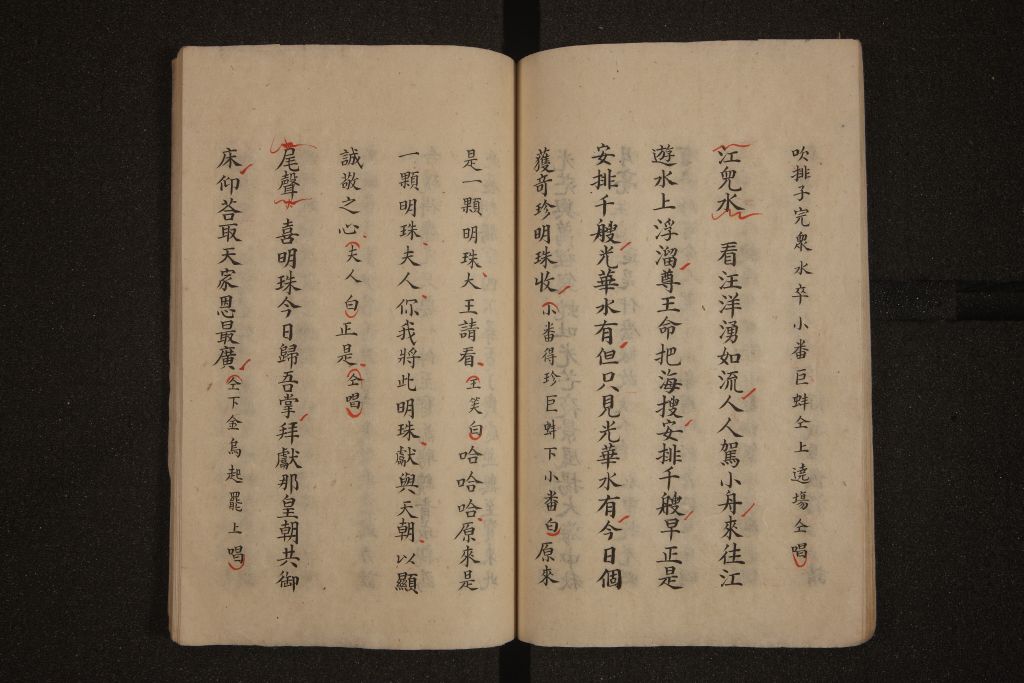 吹排子完衆水卒小番巨蚌仝上遶塲仝唱
江兒水　看汪洋湧如流人人駕小舟來往江
遊水上浮溜尊王命把海搜安排千艘早正是
安排千艘光華水有但只見光華水有今日個
獲奇珍明珠收小番得珍巨蚌下小番白原來
是一顆明珠大王請看王笑白哈哈哈原來是
一顆明珠夫人你我將此明珠獻與天朝以顯
誠敬之心夫人白正是仝唱
尾聲　喜明珠今日歸吾掌拜獻那皇朝共御
床仰荅取天家恩最廣仝下金烏起罷上唱